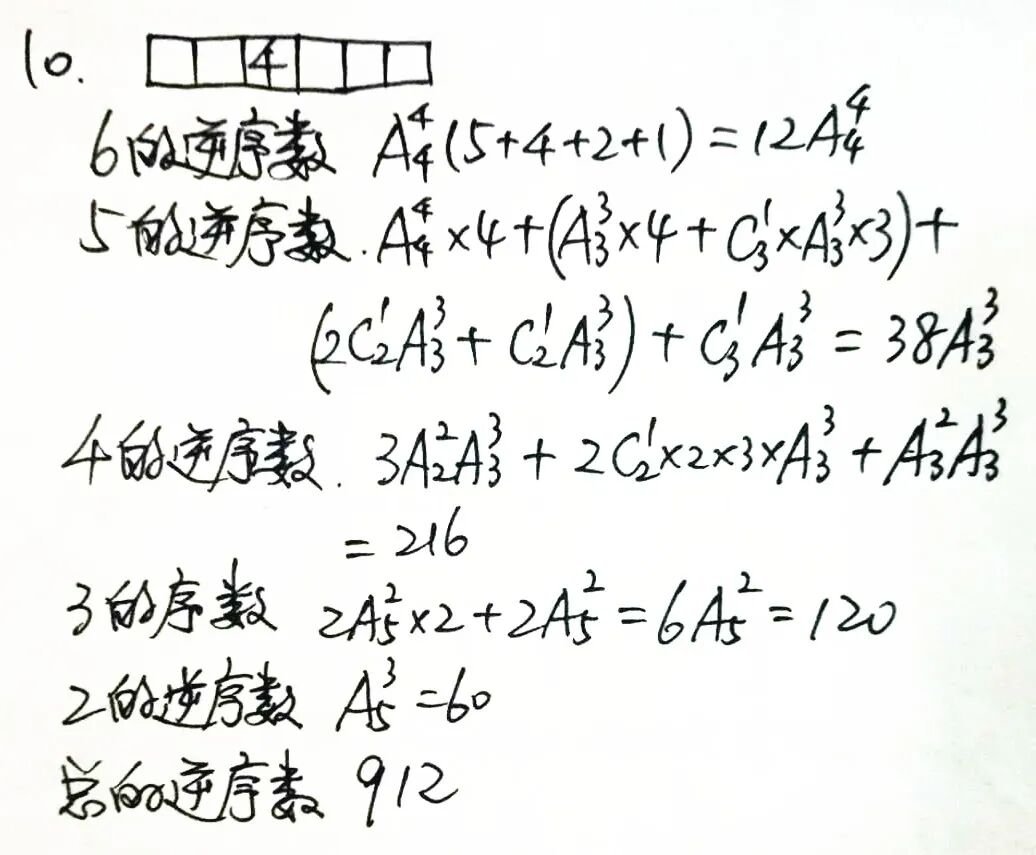 10. 4
6的逆序数 A₄⁴(5+4+2+1)=12A₄⁴
5的逆序数.A₄⁴×4+(A₃³×4+C₃¹×A₃³×3)+
(2C₂¹A₃³+C₂¹A₃³)+C₃¹A₃³=38A₃³
4的逆序数. 3A₂²A₃³+2C₂¹×2×3×A₃³+A₃²A₃³
=216
3的序数 2A₅²×2+2A₅²=6A₅²=120
2的逆序数 A₅³=60
总的逆序数 912